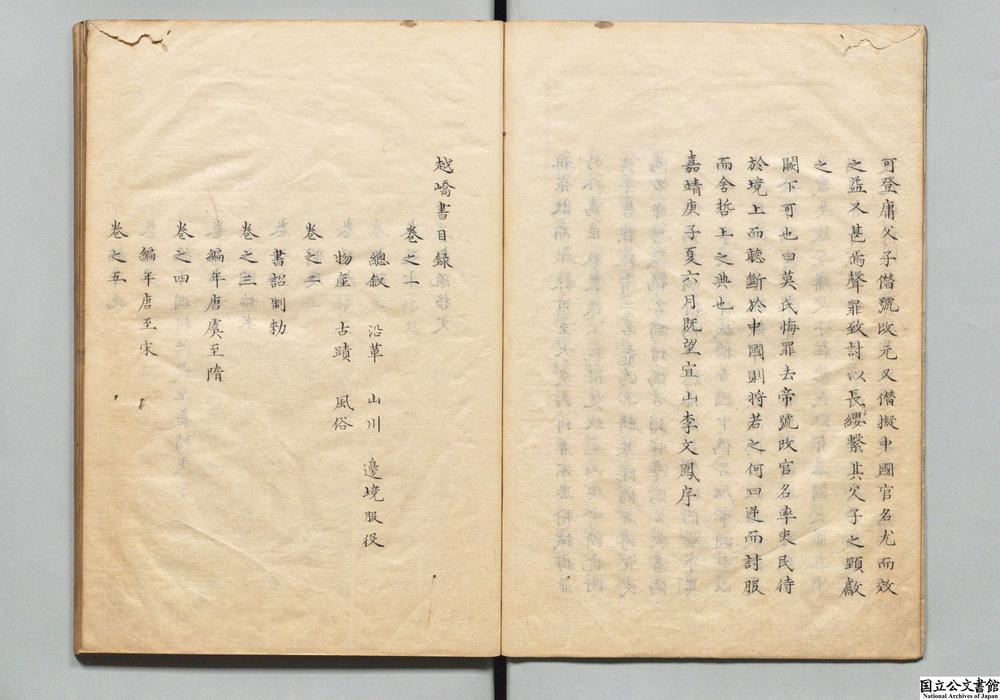 可登庸父子僭號改元又僭擬中國官名尤而效
之益又甚焉聲罪致討以長纓繫其父子之頸獻
之
闕下可也曰莫氏悔罪去帝號改官名率吏民待
於境上而聽斷於中國則將若之何曰逆而討服
而舍哲王之典也
嘉靖庚子夏六月既望宜山李文鳳序
越嶠書目録
卷之一
總叙 沿革 山川 邊境服役
物產 古蹟 風俗
卷之二
書詔制勅
卷之三
編年唐虞至隋
卷之四
編年唐至宋
卷之五
国立公文書館
National Archives of Japan